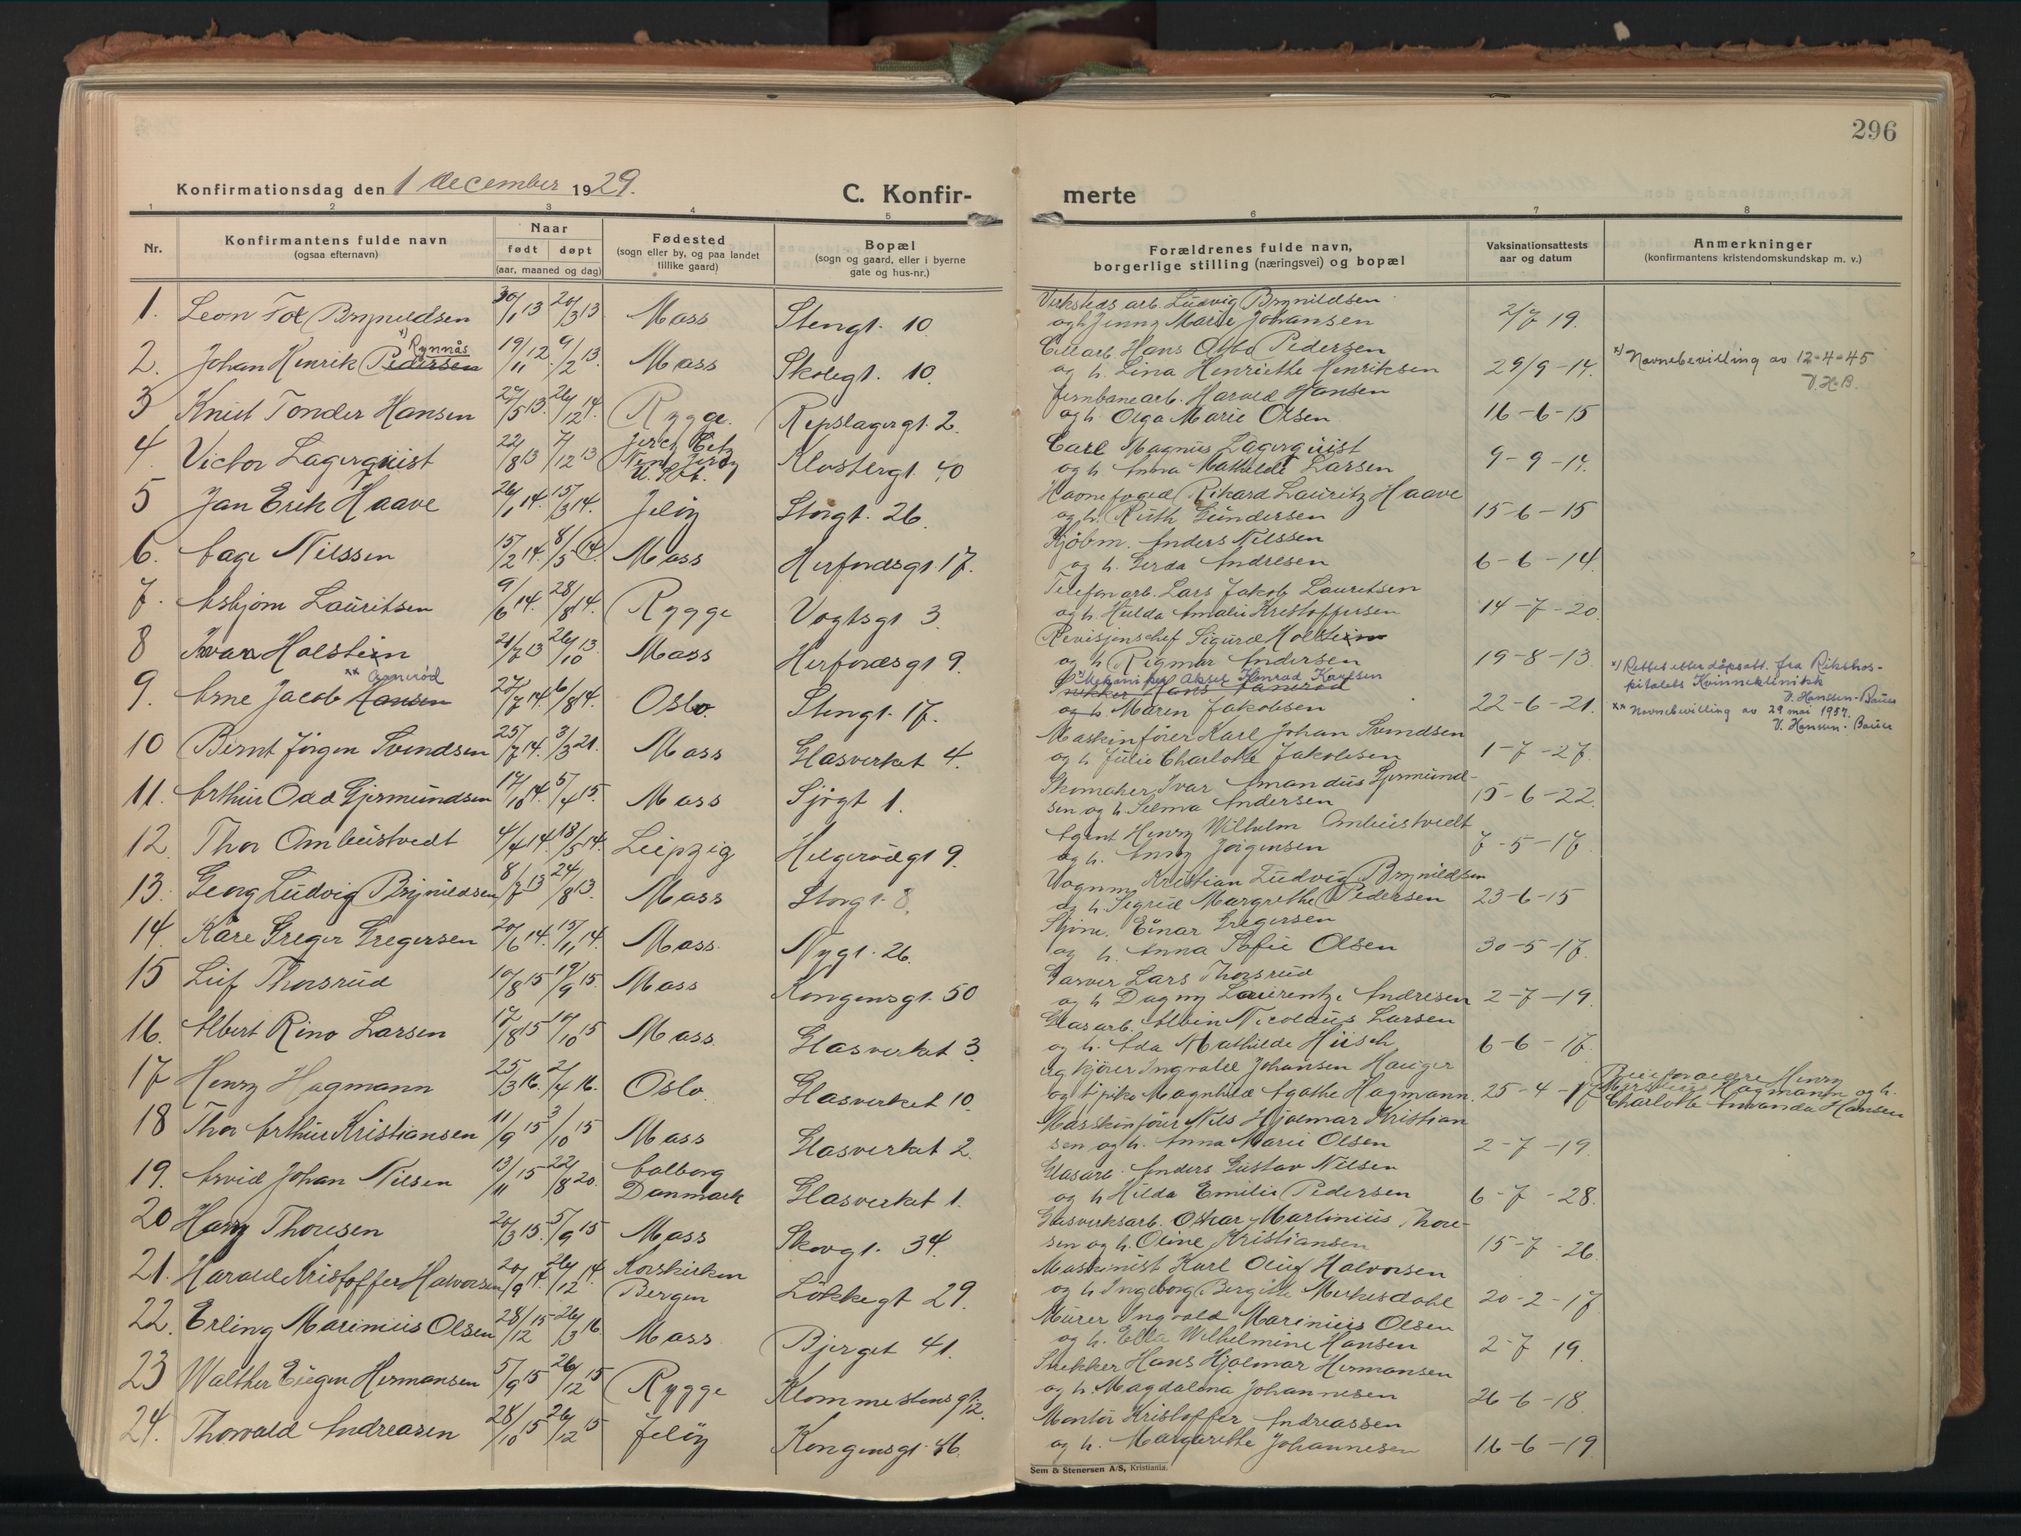 296
Konfirmationsdag den 1 december 1929.
C. Konfir- merte
1 2 3 4 5 6 7 8
Nr.
Konfirmantens fulde navn
(ogsaa efternavn)
Naar
født døpt
(aar, maaned og dag)
Fødested
(sogn eller by, og paa landet
tillike gaard)
Bopæl
(sogn og gaard, eller i byerne
gate og hus-nr.)
Forældrenes fulde navn,
borgerlige stilling (næringsvei) og bopæl
Vaksinationsattests
aar og datum
Anmerkninger
(konfirmantens kristendomskundskap m. v.)
1. Leon Brynildsen 30/1 13 20/3 13 Moss Stengt. 10 Verksteds arb. Ludvig Brynildsen
og h. Jenny Marie Johansen 2/7 19.
2. Johan Henrik Pedersen x) Rynnås 19/11 12. 9/2 13. Moss Skolegt. 10. Hans Pedersen
og h. Lina Henriethe Henriksen 29/9-14. x) Navnebevilling av 12-4-45
V. H-B.
3 Knut Tonder Hansen 27/5 13. 26/12 14. Rygge. Repslagergt. 2. Jernbanearb. Harald Hansen
og h. Olga Marie Olsen 16-6-15
4. Victor Lagerquist 22/8 13 7/12 13 Klostergt. 40 Carl Magnus Lagerquist
og h. Anna Mathilde Larsen 9-9-14.
5 Jan Erik Haave 26/1 14. 15/3 14. Jeløy Storgt. 26. Havnefoged Rikard Lauritz Haave
og h. Ruth Gundersen 15-6-15
6. Aage Nilssen 15/2 14. 8/5 14. Moss Herfordsgt. 17. Kjøbm. Anders Nilssen
og h. Gerda Andresen 6-6-14.
7. Asbjørn Lauritsen 9/6 14. 28/8 14. Rygge Vogtsgt 3. Telefonarb. Lars Jakob Lauritsen
og h. Hulda Amalie Kristoffersen 14-7-20.
8 Ivar Holstein 21/7 13 26/10 13 Moss Herfordsgt 9. Revisjonschef Sigurd Holstein
og h. Rigmor Andersen 19-8-13.
9. Arne Jacob Hansen xx Aamerød 27/7 14. 6/8 14. Oslo. Stengt. 17. x) Mekaniker Aksel Konrad Karlsen
Snekker Hans Aamerød
og h. Maren Jakobsen 22-6-21. x) Rettet etter dåpsatt. fra Rikshos-
pitalets Kvinneklinikk
V. Hansen-Bauer
xx Navnebevilling av 29 mai 1957.
V. Hansen-Bauer
10 Bernt Jørgen Svendsen 25/7 14. 3/3 21. Moss Glasverket 4. Maskinfører Karl Johan Svendsen
og h. Julie Charlotte Jakobsen 1-7-27.
11. Arthur Odd Gjermundsen 17/10 14. 5/4 15. Moss Sjøgt 1. Skomaker Ivar Amandus Gjermund-
sen og h. Selma Andersen 15-6-22.
12. Thor Ombustvedt 4/4 14. 18/5 14. Leipzig Helgerødgt 9. Agent Henry Wilhelm Ombustvedt
og h. Anny Jørgensen 7-5-17.
13. Georg Ludvig Brynildsen 8/7 13 24/8 13. Moss Storgt. 8. Vognm. Kristian Ludvig Brynildsen
og h. Sigrid Margrethe Pedersen 23-6-15
14. Kåre Greger Gregersen 20/6 14. 15/11 14. Moss. Nygt. 26. Sjøm. Einar Gregersen
og h. Anna Sofie Olsen 30-5-17.
15 Leif Thorsrud 10/8 15 19/9 15. Moss Kongensgt. 50 Garver Lars Thorsrud
og h. Dagny Laurentze Andresen 2-7-19.
16. Albert Rino Larsen 17/8 15 10/10 15 Moss. Glasverket 3. Glasarb. Albin Nicolaus Larsen
og h. Ada Mathilde Hüsch 6-6-17.
17 Henry Hagmann 25/3 16. 2/4 16. Oslo. Glasverket 10. Ingvald Johansen Hauger
og Magnhild Agathe Hagmann. 25-4-17 Henry
Hagmann og h.
Charlotte Amanda Hansen
18 Thor Arthur Kristiansen 11/9 15 3/10 15 Moss Glasverket 2. Maskinfører Nils Hjalmar Kristian
sen og h. Anna Marie Olsen 2-7-19.
19. Arvid Johan Nilsen 13/11 15 22/8 20. Aalborg
Danmark Glasverket 1. Glasarb. Anders Gustav Nilsen
og h. Hilda Emilie Pedersen 6-7-28.
20 Harry Thoresen 20/3 15. 5/9 15 Moss Skovgt. 34. Glasverksarb. Oskar Martinius Thore-
sen og h. Oline Kristiansen 15-7-26.
21. Harald Kristoffer Halvorsen 20/9 14. 26/12 14. Korskirken
Bergen Løkkegt 29. Maskinist Karl Oluf Halvorsen
og h. Ingeborg Bergitte Mirkesdahl 20-2-17
22. Erling Marinius Olsen 28/12 15 26/3 16. Moss. Bjerget 41. Murer Ingvald Marinius Olsen
og h. Ella Wilhelmine Hansen 2-7 19.
23 Walther Eugen Hermansen 5/9 15 26/12 15 Rygge Klommestensgt 12. Snekker Hans Hjalmar Hermansen
og h. Magdalena Johannesen 26-6-18.
24. Thorvald Andreasen 28/10 15 26/12 15 Jeløy Kongensgt. 46. Montør Kristoffer Andreassen
og h. Margarethe Johannesen 16-6-19
Sem & Stenersen A/S, Kristiania.